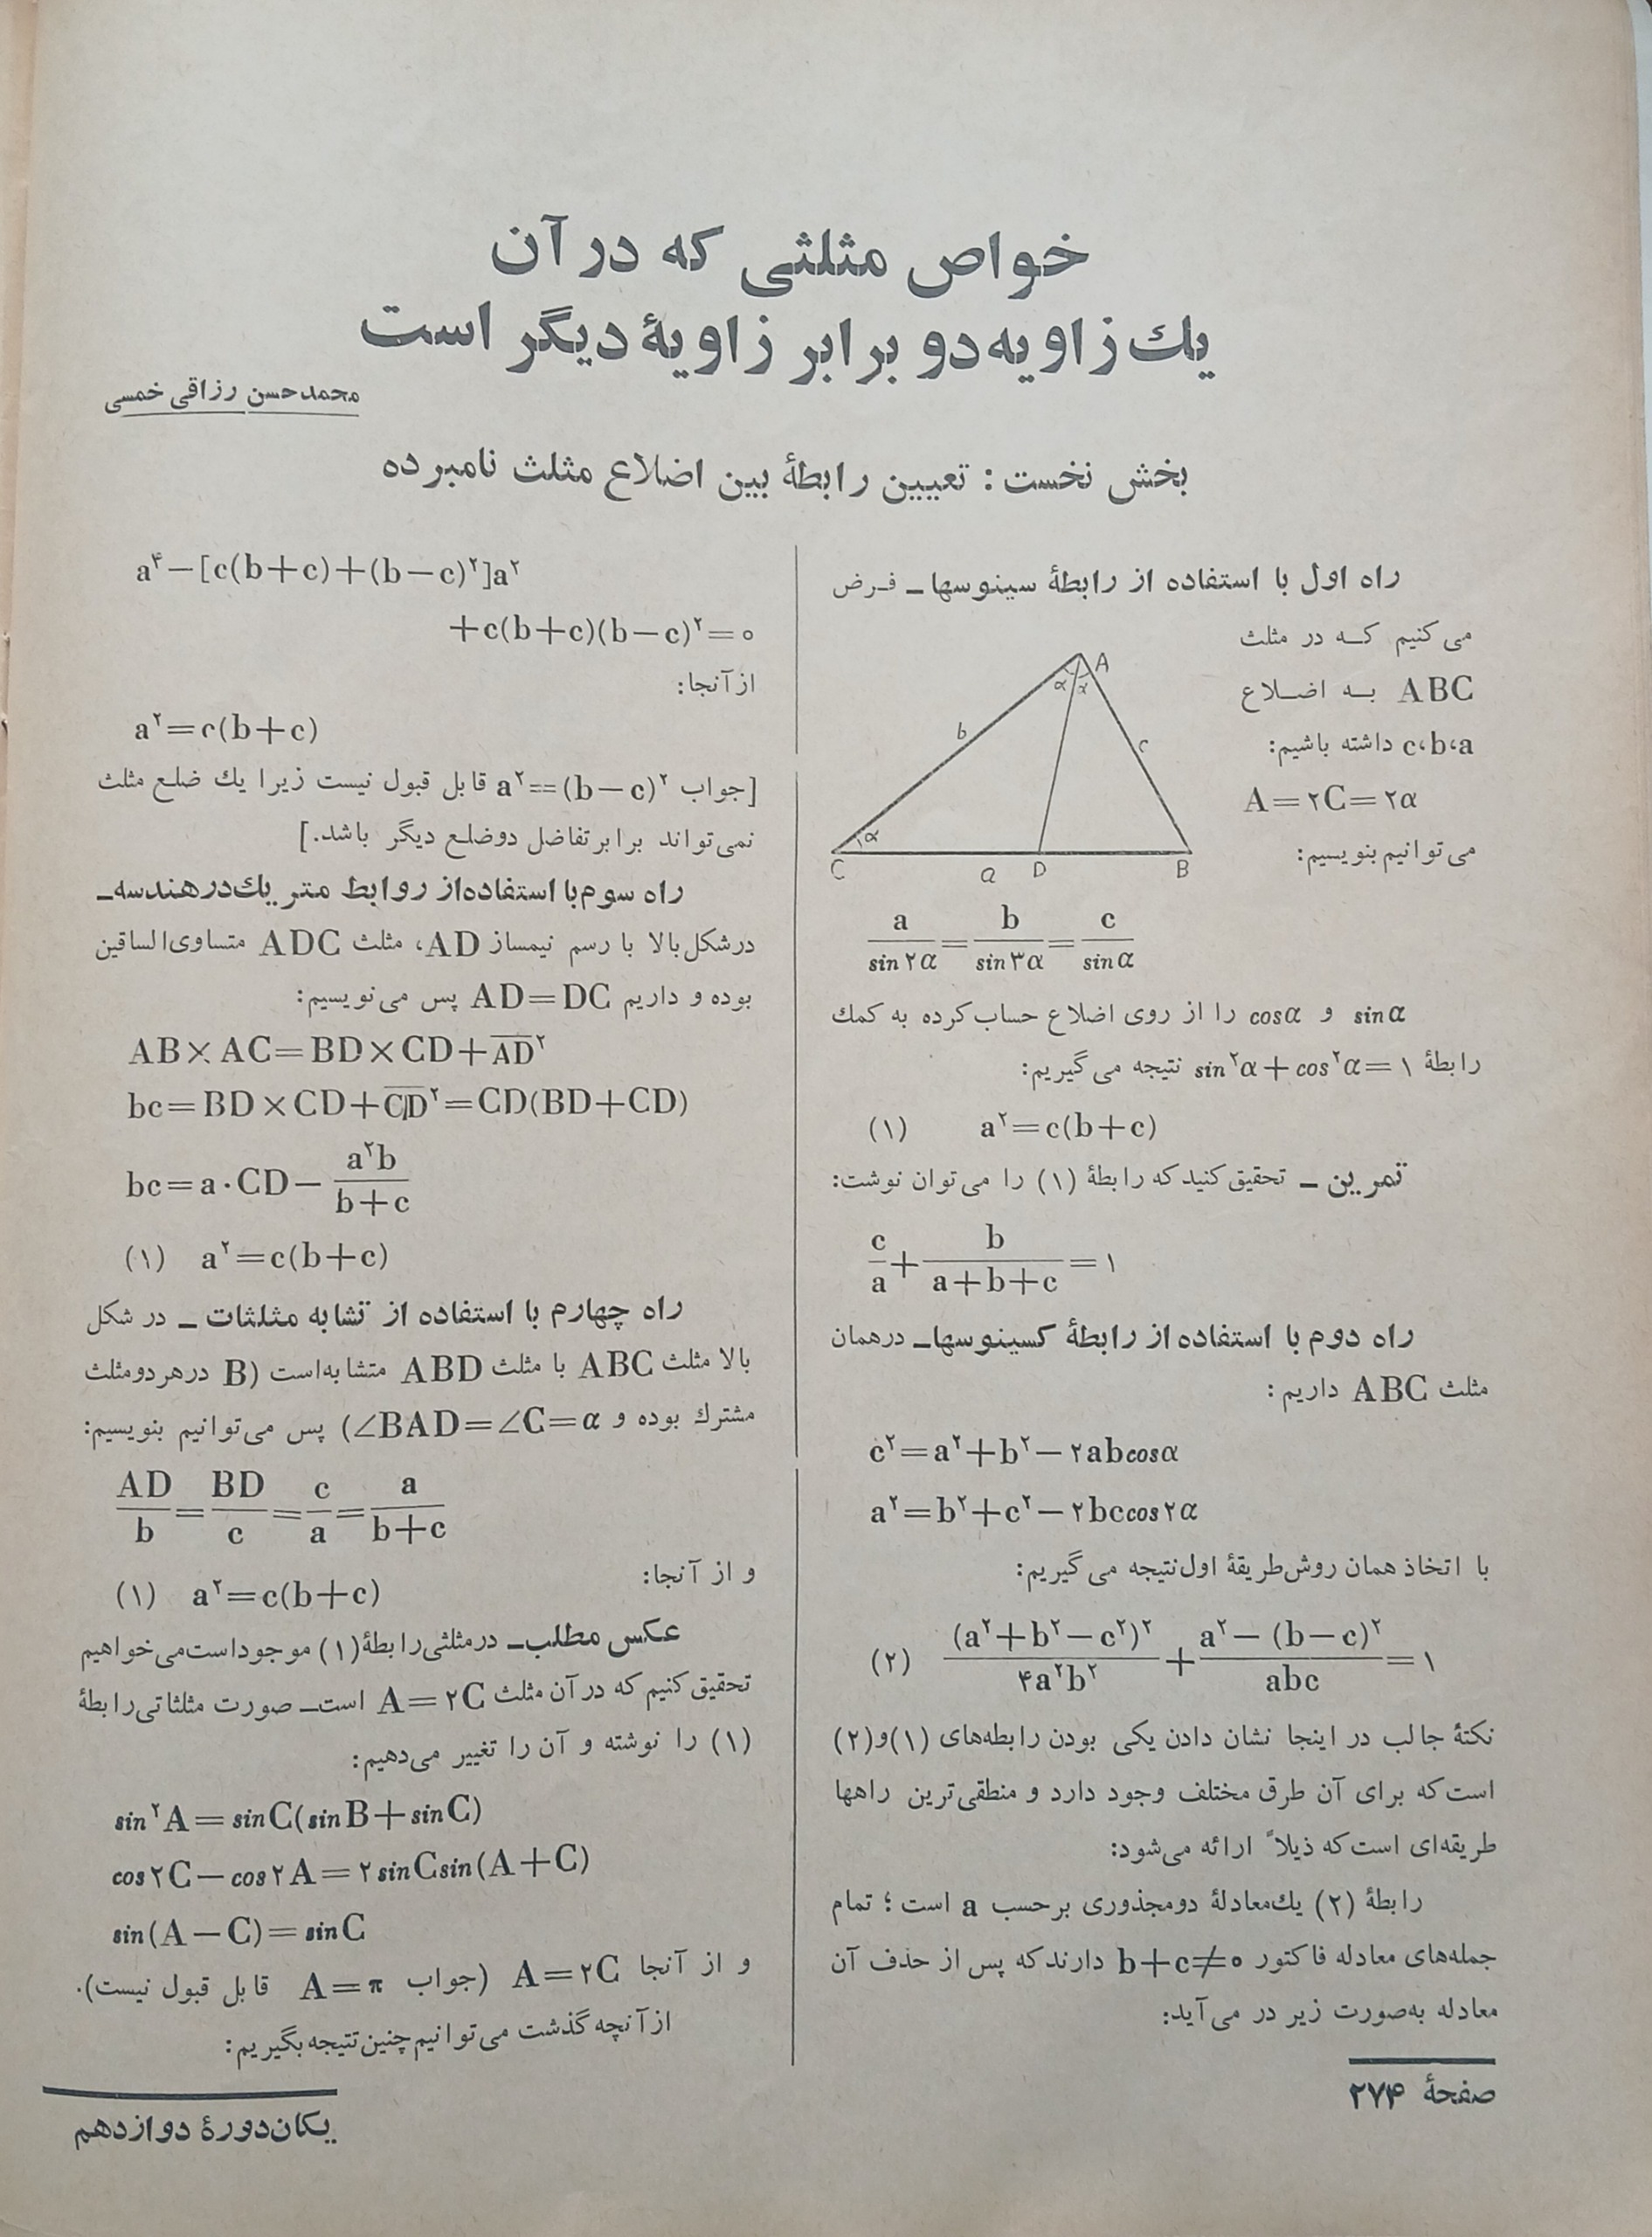 خواص مثلثی که در آن
یك زاویه دو برابر زاویهٔ دیگر است
محمدحسن رزاقی خمسی
بخش نخست : تعیین رابطهٔ بین اضلاع مثلث نامبرده
راه اول با استفاده از رابطهٔ سینوسها ـ فرض
می کنیم که در مثلث
ABC به اضلاع
a،b،c داشته باشیم:
A=۲C=۲α
می توانیم بنویسیم:
A
α α
b
c
α
C a D B
a/sin۲α = b/sin۳α = c/sinα
sinα و cosα را از روی اضلاع حساب کرده به کمك
رابطهٔ sin²α+cos²α=۱ نتیجه می گیریم:
(۱) a²=c(b+c)
تمرین ـ تحقیق کنید که رابطهٔ (۱) را می توان نوشت:
c/a + b/(a+b+c) = ۱
راه دوم با استفاده از رابطهٔ کسینوسها ـ درهمان
مثلث ABC داریم :
c²=a²+b²−۲abcosα
a²=b²+c²−۲bccos۲α
با اتخاذ همان روش طریقهٔ اول نتیجه می گیریم:
(۲) (a²+b²−c²)²/۴a²b² + (a²−(b−c)²)/abc = ۱
نکتهٔ جالب در اینجا نشان دادن یکی بودن رابطه‌های (۱) و (۲)
است که برای آن طرق مختلف وجود دارد و منطقی ترین راهها
طریقه‌ای است که ذیلاً ارائه می شود:
رابطهٔ (۲) یك معادلهٔ دومجذوری برحسب a است ؛ تمام
جمله‌های معادله فاکتور b+c≠۰ دارند که پس از حذف آن
معادله به صورت زیر در می آید:
a⁴−[c(b+c)+(b−c)²]a²
+c(b+c)(b−c)²=۰
از آنجا:
a²=c(b+c)
[جواب a²=(b−c)² قابل قبول نیست زیرا یك ضلع مثلث
نمی تواند برابر تفاضل دوضلع دیگر باشد.]
راه سوم با استفاده از روابط متریك در هندسه ـ
در شکل بالا با رسم نیمساز AD، مثلث ADC متساوی الساقین
بوده و داریم AD=DC پس می نویسیم:
AB×AC=BD×CD+A̅D̅²
bc=BD×CD+C̅D̅²=CD(BD+CD)
bc=a·CD− a²b/(b+c)
(۱) a²=c(b+c)
راه چهارم با استفاده از تشابه مثلثات ـ در شکل
بالا مثلث ABC با مثلث ABD متشابه است (B در هر دو مثلث
مشترك بوده و ∠BAD=∠C=α) پس می توانیم بنویسیم:
AD/b = BD/c = c/a = a/(b+c)
و از آنجا:
(۱) a²=c(b+c)
عکس مطلب ـ در مثلثی رابطهٔ (۱) موجود است می خواهیم
تحقیق کنیم که در آن مثلث A=۲C است ـ صورت مثلثاتی رابطهٔ
(۱) را نوشته و آن را تغییر می دهیم:
sin²A=sinC(sinB+sinC)
cos۲C−cos۲A=۲sinCsin(A+C)
sin(A−C)=sinC
و از آنجا A=۲C (جواب A=π قابل قبول نیست).
از آنچه گذشت می توانیم چنین نتیجه بگیریم:
صفحهٔ ۲۷۴
یکان دورهٔ دوازدهم